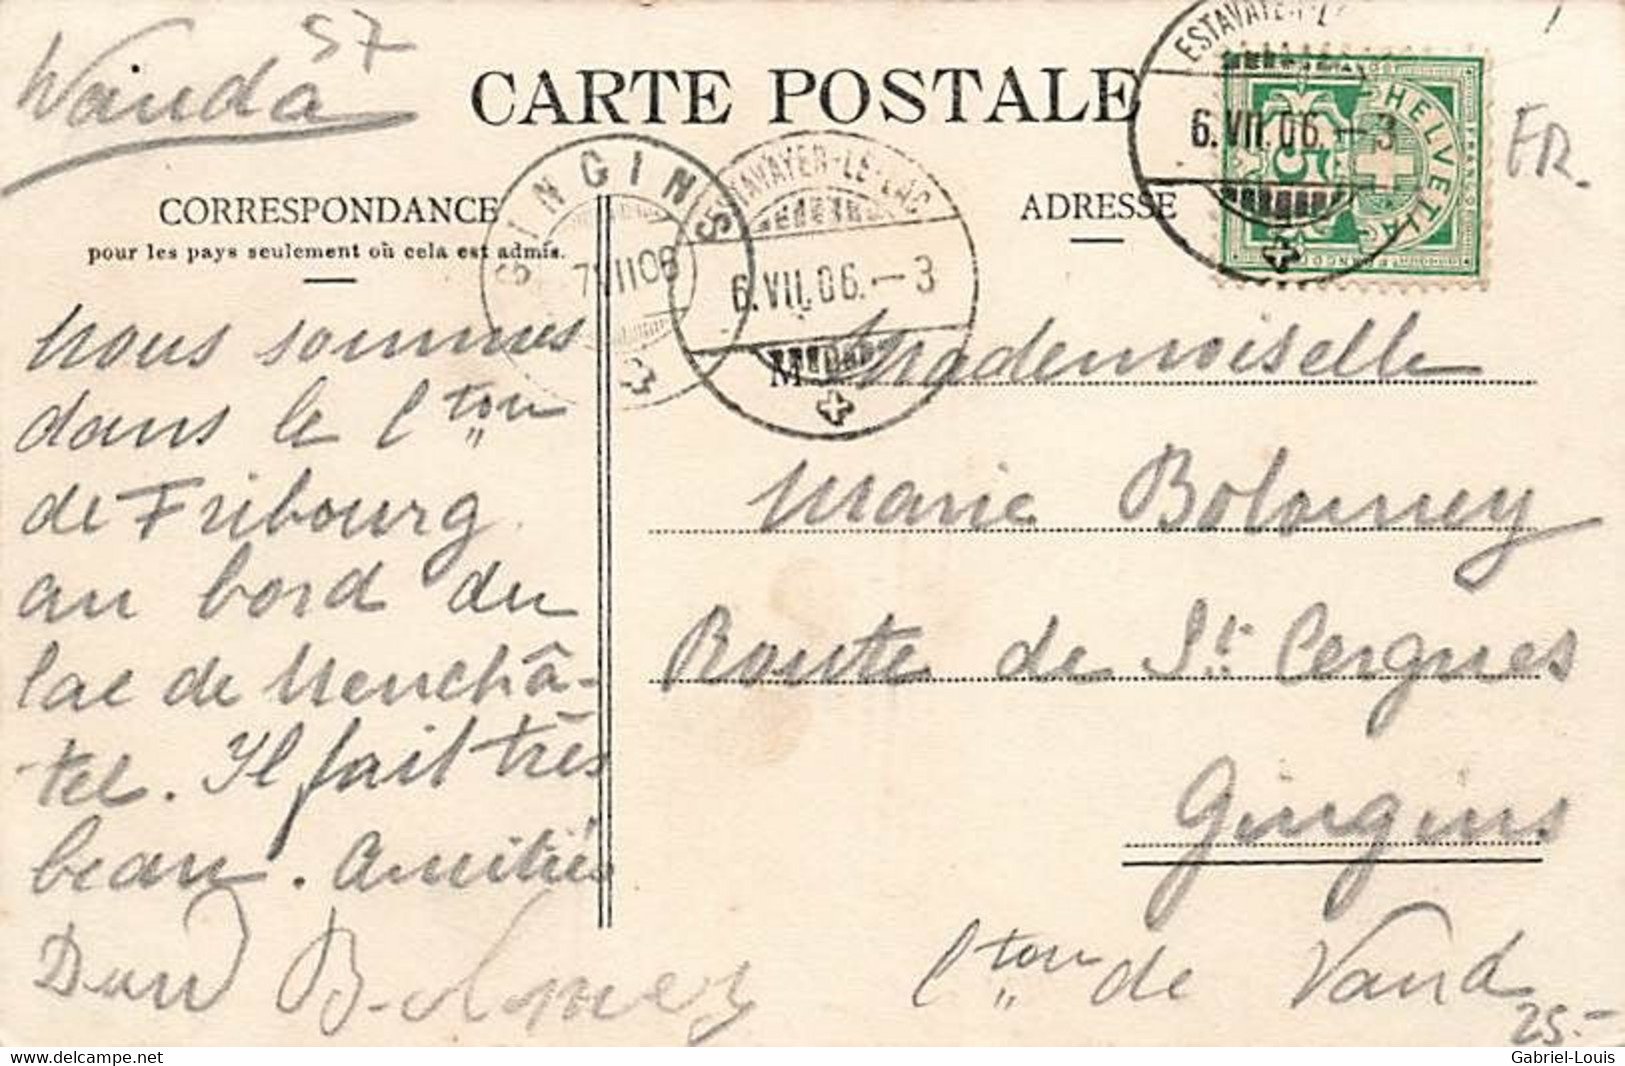 Wanda
57
CARTE POSTALE
CORRESPONDANCE
pour les pays seulement où cela est admis.
ADRESSE
ESTAVAYER-LE-LAC
6.VII.06.–3
HELVETIA
5
FR.
GINGINS
7VII06
ESTAVAYER-LE-LAC
6.VII.06.–3
Nous sommes
dans le Cton
de Fribourg
au bord du
lac de Neuchâ-
tel. Il fait très
beau. Amitiés
M Mademoiselle
Marie Bolomey
Route de St. Cergues
Gingins
Cton de Vaud
25.-
www.delcampe.net
Gabriel-Louis